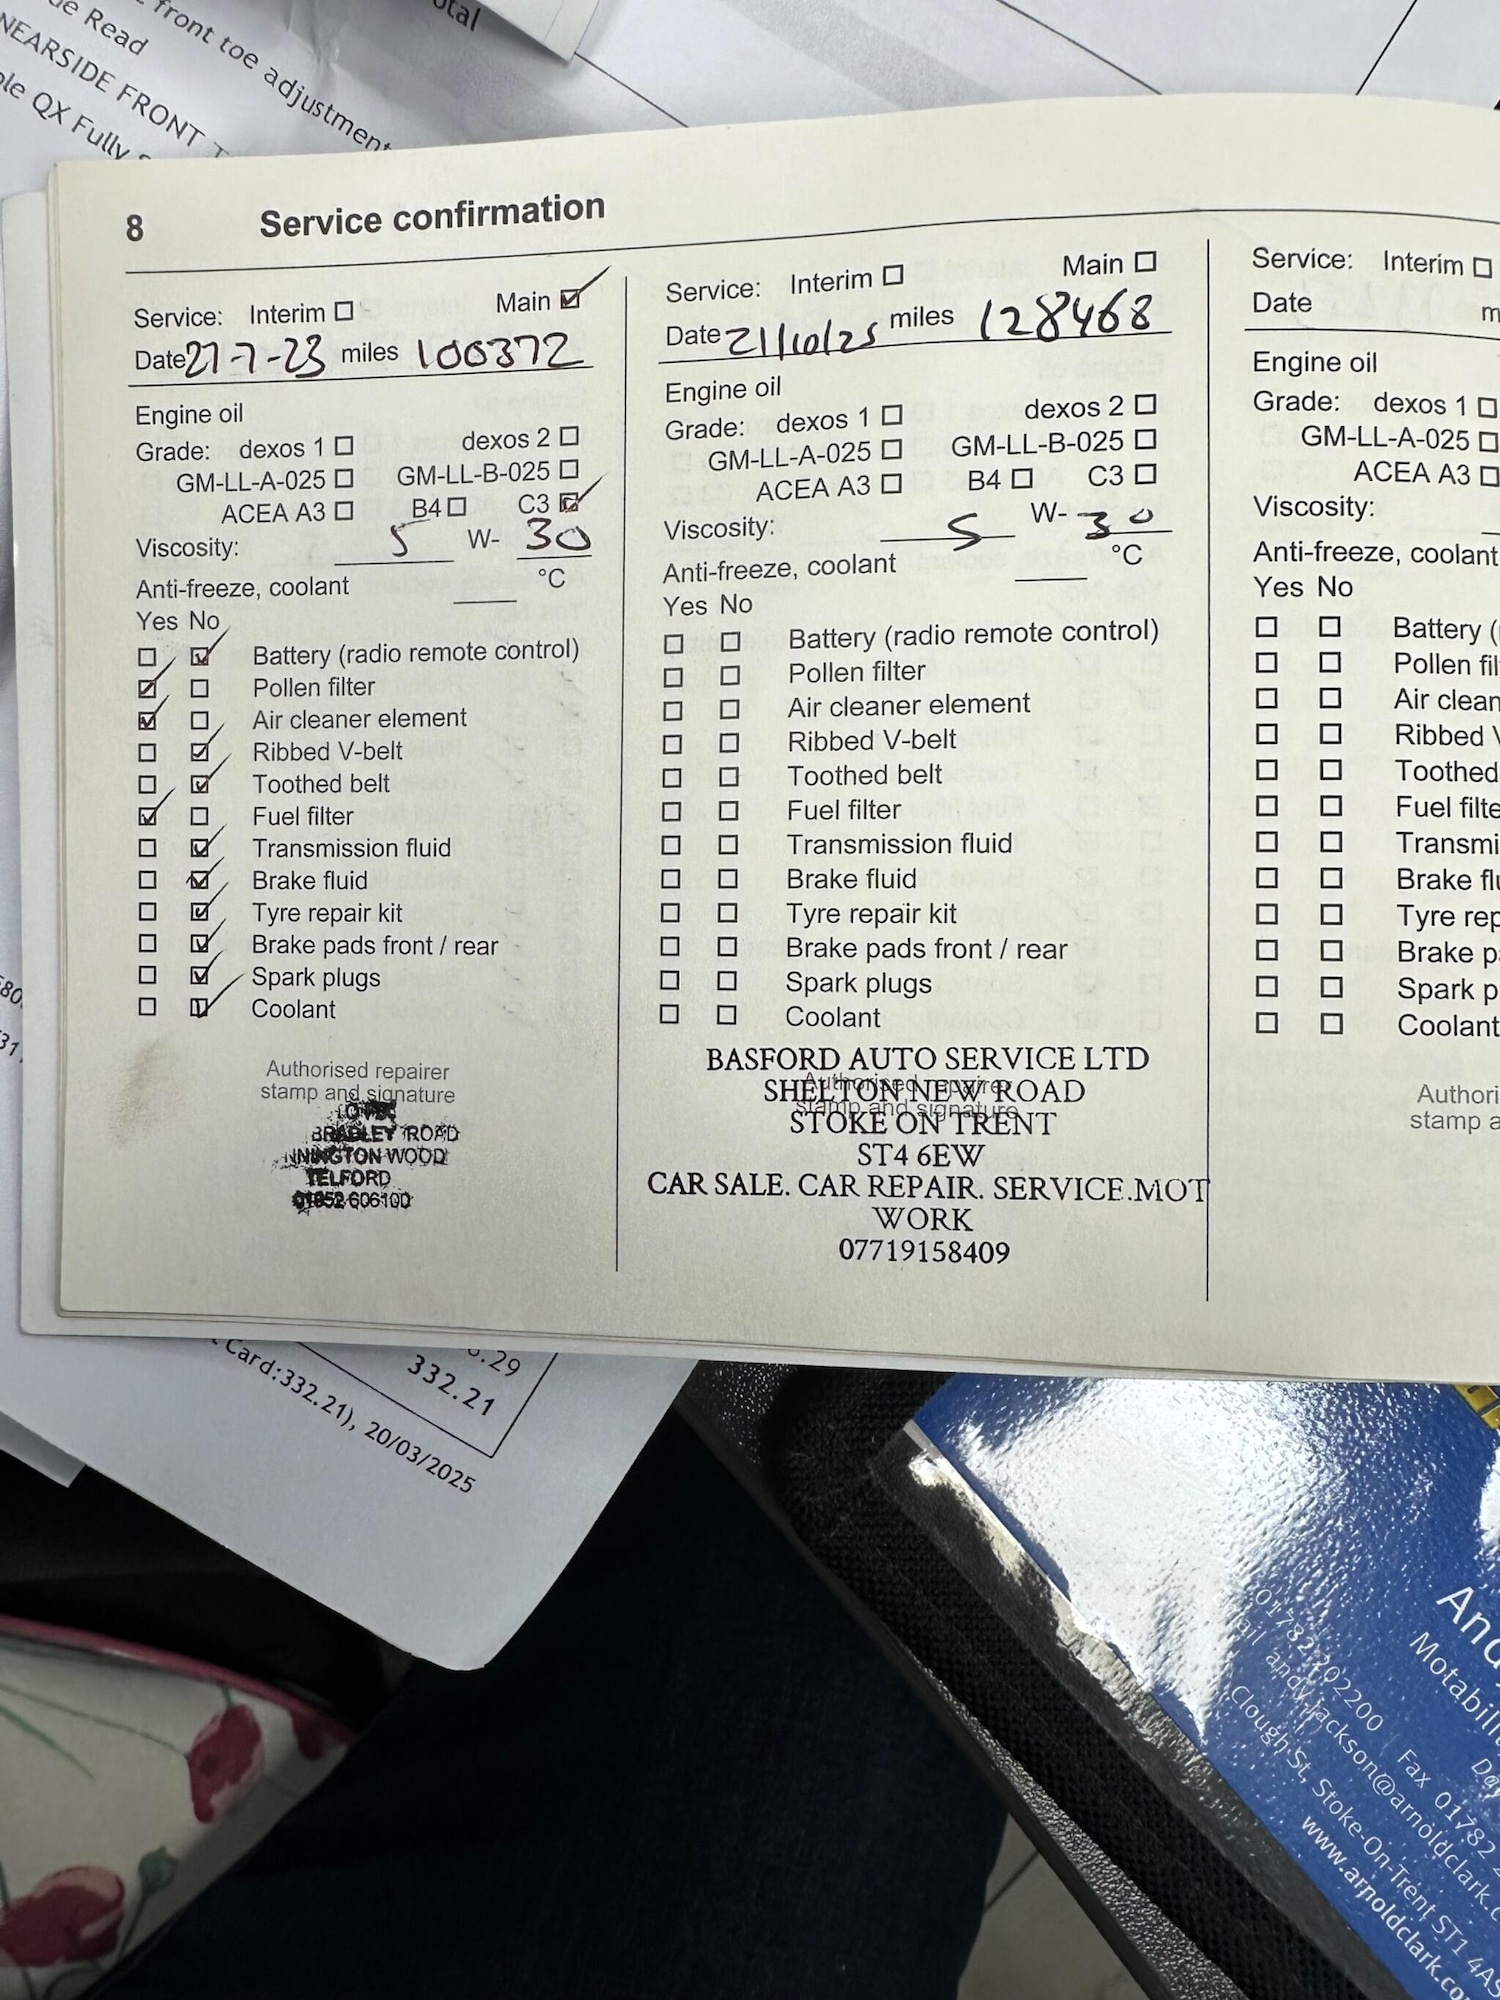 otal
front toe adjustment
de Read
NEARSIDE FRONT
ple QX Fully
8 Service confirmation
Service: Interim ☐ Main ☑
Date 27-7-23 miles 100372
Engine oil
Grade: dexos 1 ☐ dexos 2 ☐
GM-LL-A-025 ☐ GM-LL-B-025 ☐
ACEA A3 ☐ B4 ☐ C3 ☑
Viscosity: 5 W- 30
Anti-freeze, coolant °C
Yes No
☐ ☑ Battery (radio remote control)
☑ ☐ Pollen filter
☑ ☐ Air cleaner element
☐ ☑ Ribbed V-belt
☐ ☑ Toothed belt
☑ ☐ Fuel filter
☐ ☑ Transmission fluid
☐ ☑ Brake fluid
☐ ☑ Tyre repair kit
☐ ☑ Brake pads front / rear
☐ ☑ Spark plugs
☐ ☑ Coolant
Authorised repairer
stamp and signature
BRADLEY ROAD
WOOD
TELFORD
Service: Interim ☐ Main ☐
Date 21/10/25 miles 128468
Engine oil
Grade: dexos 1 ☐ dexos 2 ☐
GM-LL-A-025 ☐ GM-LL-B-025 ☐
ACEA A3 ☐ B4 ☐ C3 ☐
Viscosity: 5 W- 30
Anti-freeze, coolant °C
Yes No
☐ ☐ Battery (radio remote control)
☐ ☐ Pollen filter
☐ ☐ Air cleaner element
☐ ☐ Ribbed V-belt
☐ ☐ Toothed belt
☐ ☐ Fuel filter
☐ ☐ Transmission fluid
☐ ☐ Brake fluid
☐ ☐ Tyre repair kit
☐ ☐ Brake pads front / rear
☐ ☐ Spark plugs
☐ ☐ Coolant
Authorised repairer
stamp and signature
BASFORD AUTO SERVICE LTD
SHELTON NEW ROAD
STOKE ON TRENT
ST4 6EW
CAR SALE. CAR REPAIR. SERVICE.MOT
WORK
07719158409
Service: Interim ☐
Date m
Engine oil
Grade: dexos 1 ☐
GM-LL-A-025 ☐
ACEA A3 ☐
Viscosity:
Anti-freeze, coolant
Yes No
☐ ☐ Battery (
☐ ☐ Pollen fil
☐ ☐ Air clean
☐ ☐ Ribbed V
☐ ☐ Toothed
☐ ☐ Fuel filte
☐ ☐ Transmi
☐ ☐ Brake flu
☐ ☐ Tyre rep
☐ ☐ Brake p
☐ ☐ Spark p
☐ ☐ Coolant
Authori
stamp a
.29
332.21
Card:332.21), 20/03/2025
And
Motabili
01782 202200 Fax 01782 2
andy.jackson@arnoldclark.c
Clough St, Stoke-On-Trent ST1 4AS
www.arnoldclark.co